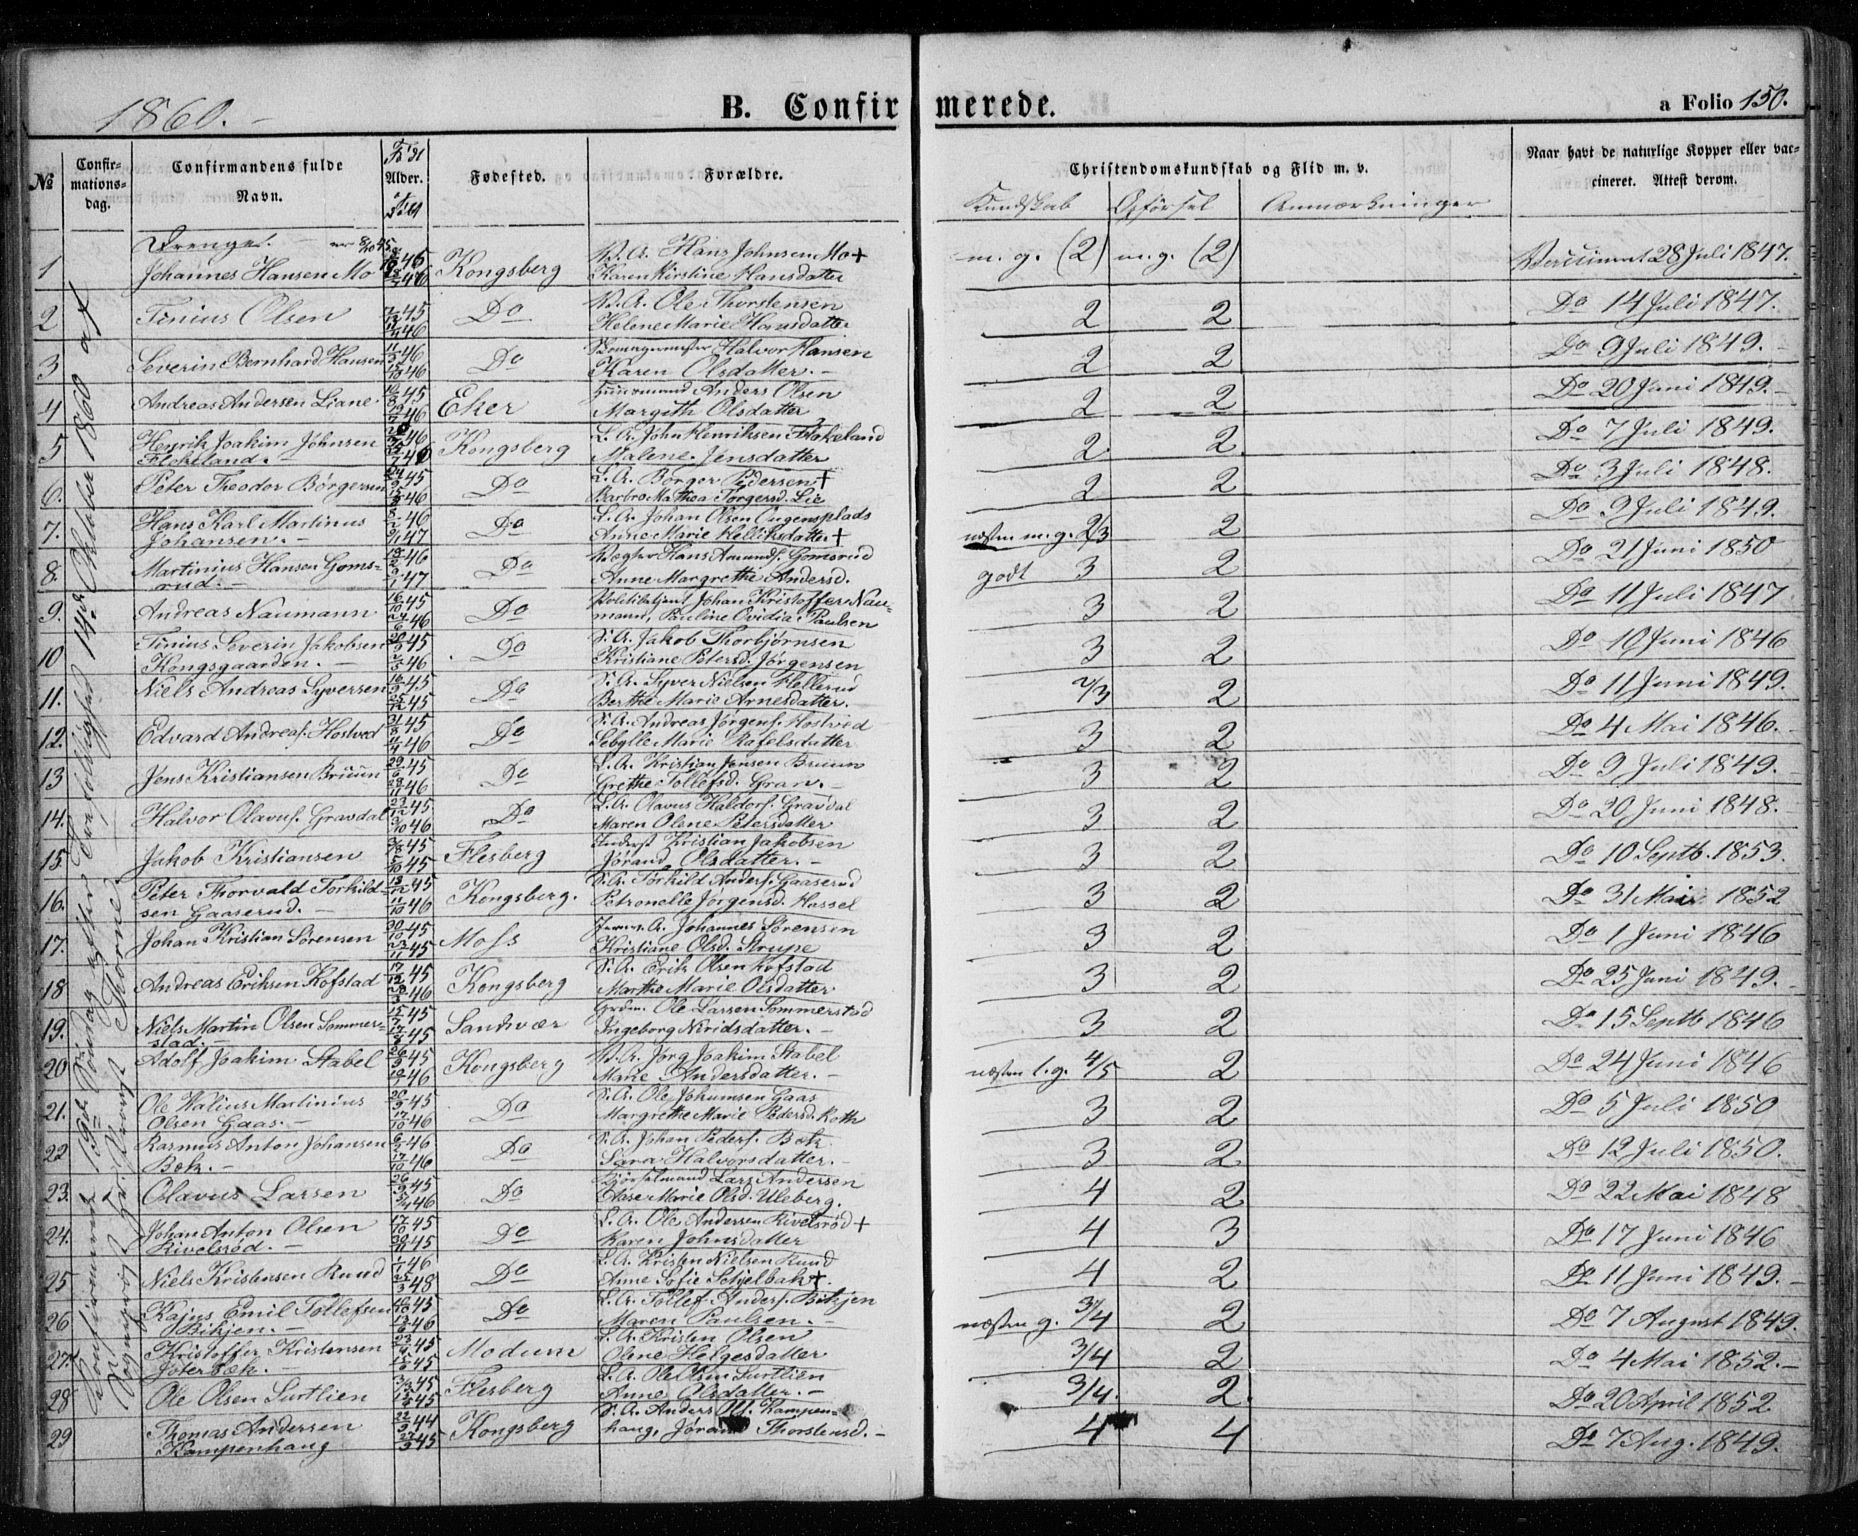 1860.
B. Confirmerede.
a Folio 150.
№
Confirmationsdag.
Confirmandens fulde Navn.
Alder.
Fødested.
Forældre.
Christendomskundskab og Flid m. v.
Kundskab Opførsel Anmærkninger
Naar havt de naturlige Kopper eller vaccineret. Attest derom.
Confirmerede 19de Søndag efter Trefoldighed 14de Oktober 1860 af
Sognepræst Hr. Provst Thorne.
Drenge.
1 Johannes Hansen Mo Kongsberg B. A. Hans Johnsen Mo + Karen Kirstine Hansdatter m. g. (2) m. g. (2) Vaccineret 28 Juli 1847.
2 Tinius Olsen 45 46 Do B. A. Ole Thorstensen Helene Marie Hansdatter 2 2 Do 14 Juli 1847.
3 Severin Bernhard Hansen 46 46 Do Halvor Hansen Karen Olsdatter. 2 2 Do 9 Juli 1849.
4 Andreas Andersen Liane 45 46 Eker Anders Olsen Margith Olsdatter 2 2 Do 20 Juni 1849.
5 Henrik Joakim Johnsen Flekeland. 46 Kongsberg L. A. John Henriksen Flakeland Malene Jensdatter 2 2 Do 7 Juli 1849.
6. Peter Theodor Børgersen 45 46 Do L. A. Børger Pedersen + Barbro Mathea Torgersd. Lie 2 2 Do 3 Juli 1848.
7. Hans Karl Martinus Johansen. 46 47 Do L. A. Johan Olsen Engensplads Anne Marie Kelliksdatter + næsten m. g. 2/3 2 Do 9 Juli 1849.
8. Martinius Hansen Gomsrud. 46 47 Do Vægter Hans Amundf. Gomsrud Anne Margrethe Andersd. godt 3 2 Do 21 Juni 1850
9. Andreas Naumann 16/10 45 46 Do Politibetjent Johan Kristoffer Naumann, Pauline Ovidia Paulsen 3 2 Do 11 Juli 1847
10 Tinius Severin Jakobsen Kongsgaarden. 45 46 Do S. A. Jakob Thorbjørnsen Kristiane Petersd. Jørgensen 3 2 Do 10 Juni 1846
11. Niels Andreas Syversen 45 45 Do S. A. Syver Nielsen Hellerud Berthe Marie Arnesdatter. 2/3 2 Do 11 Juni 1849.
12. Edvard Andreaf. Hostved 31/8 45 46 Do S. A. Andreas Jørgenf. Hostved Sebylle Marie Rafelsdatter 3 2 Do 4 Mai 1846.
13 Jens Kristiansen Bruun 29/6 45 46 Do L. A. Kristian Jensen Bruun Grethe Tollefsd. Gran. 3 2 Do 9 Juli 1849.
14. Halvor Olavuf. Gravdal 45 46 Do L. A. Olavus Haldorf. Gravdal Maren Olene Petersdatter 3 2 Do 20 Juni 1848.
15 Jakob Kristiansen 45 45 Flesberg Inderst Kristian Jakobsen Jørand Olsdatter. 3 2 Do 10 Septb. 1853.
16. Peter Thorvald Torkildsen Gaaserud. 45 46 Kongsberg. S. A. Torkild Anderf. Gaaserud Petronelle Jørgensd. Hassel 3 2 Do 31 Mai 1852
17. Johan Kristian Sørensen 45 45 Moss A. Johannes Sørensen Kristiane Olsd. Strupe 3 2 Do 1 Juni 1846
18 Andreas Eriksen Kofstad 17/12 45 46 Kongsberg S. A. Erik Olsen Kofstad Marthe Marie Olsdatter 3 2 Do 25 Juni 1849.
19. Niels Martin Olsen Sommerstad. 45 45 Sandsvær Grdm. Ole Larsen Sommerstad Ingeborg Niridsdatter. 3 2 Do 15 Septb 1846
20 Adolf Joakim Stabel 45 46 Kongsberg B. A. Jørg Joakim Stabel Marie Andersdatter. næsten t. g. 4/5 2 Do 24 Juni 1846
21. Ole Halius Martinius Olsen Gaas. 45 46 Do S. A. Ole Johannsen Gaas Margrethe Marie Pedersd. Roth 3 2 Do 5 Juli 1850
22 Rasmus Anton Johansen Bæk. 46 17/10 46 Do S. A. Johan Pederf. Bæk Sara Halvorsdatter. 3 2 Do 12 Juli 1850.
23. Olavus Larsen 45 46 Do Kjørselmand Lars Andersen Aase Marie Olsd. Uleberg. 4 2 Do 22 Mai 1848
24. Johan Anton Olsen Rivelsrød. 17/10 45 45 Do L. A. Ole Andersen Rivelsrød + Karen Johnsdatter 4 3 Do 17 Juni 1846
25 Niels Kristensen Ruud 46 48 Do L. A. Kristen Nielsen Ruud Anne Sofie Schjelbak +. 4 2 Do 11 Juni 1849.
26 Kajus Emil Tollefsen Bikjen. 45 46 Do L. A. Tollef Anderf. Bikjen Maren Paulsen. næsten g. 3/4 2 Do 7 August 1849.
27. Kristoffer Kristensen Joterbæk. 45 45 Modum L. A. Kristen Olsen Olene Helgesdatter 3/4 2 Do 4 Mai 1852.
28 Ole Olsen Surtlien 45 45 Flesberg L. A. Ole Olsen Surtlien Anne Olsdatter. 3/4. 2. Do 20 April 1852
29 Thomas Andersen Kampenhaug 44 45 Kongsberg S. A. Anders Olf. Kampenhaug, Thorstensd. 4 4 Do 7 Aug. 1849.